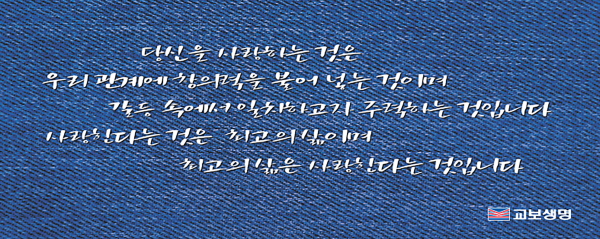 당신을 사랑하는 것은
우리 관계에 창의력을 불어 넣는 것이며
갈등 속에서 일치하고자 주력하는 것입니다
사랑한다는 것은 최고의 삶이며
최고의 삶은 사랑한다는 것입니다
교보생명